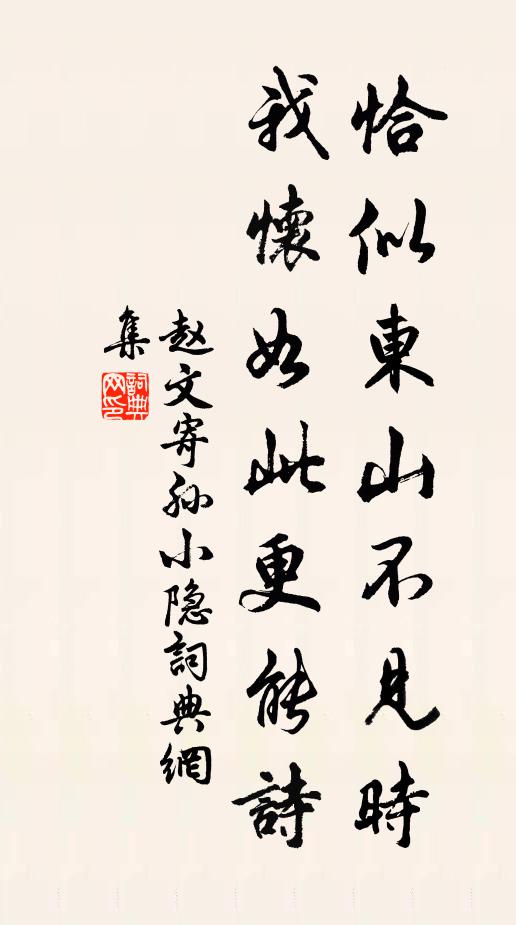 恰似東山不見時
我懷如此更能詩
赵文寄孙小隐詞典網
集
詞典
网印